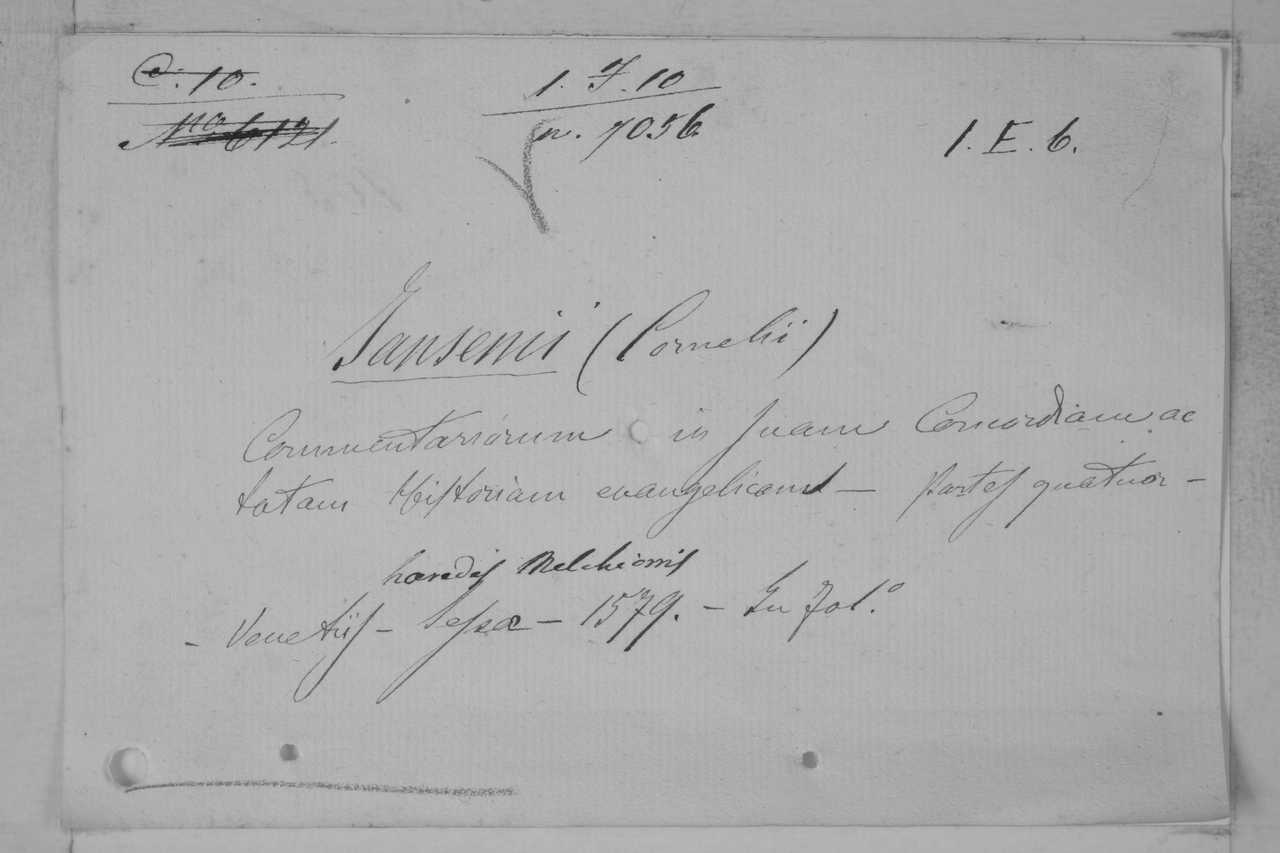 C. 10. 1. F. 10 1. E. 6.
No 6121. n. 7056.
Jansenii (Cornelii)
Commentariorum in suam Concordiam ac
totam Historiam evangelicam — Partes quatuor —
hæredis Melchioris
- Venetiis — Sessæ — 1579. — In fol.o